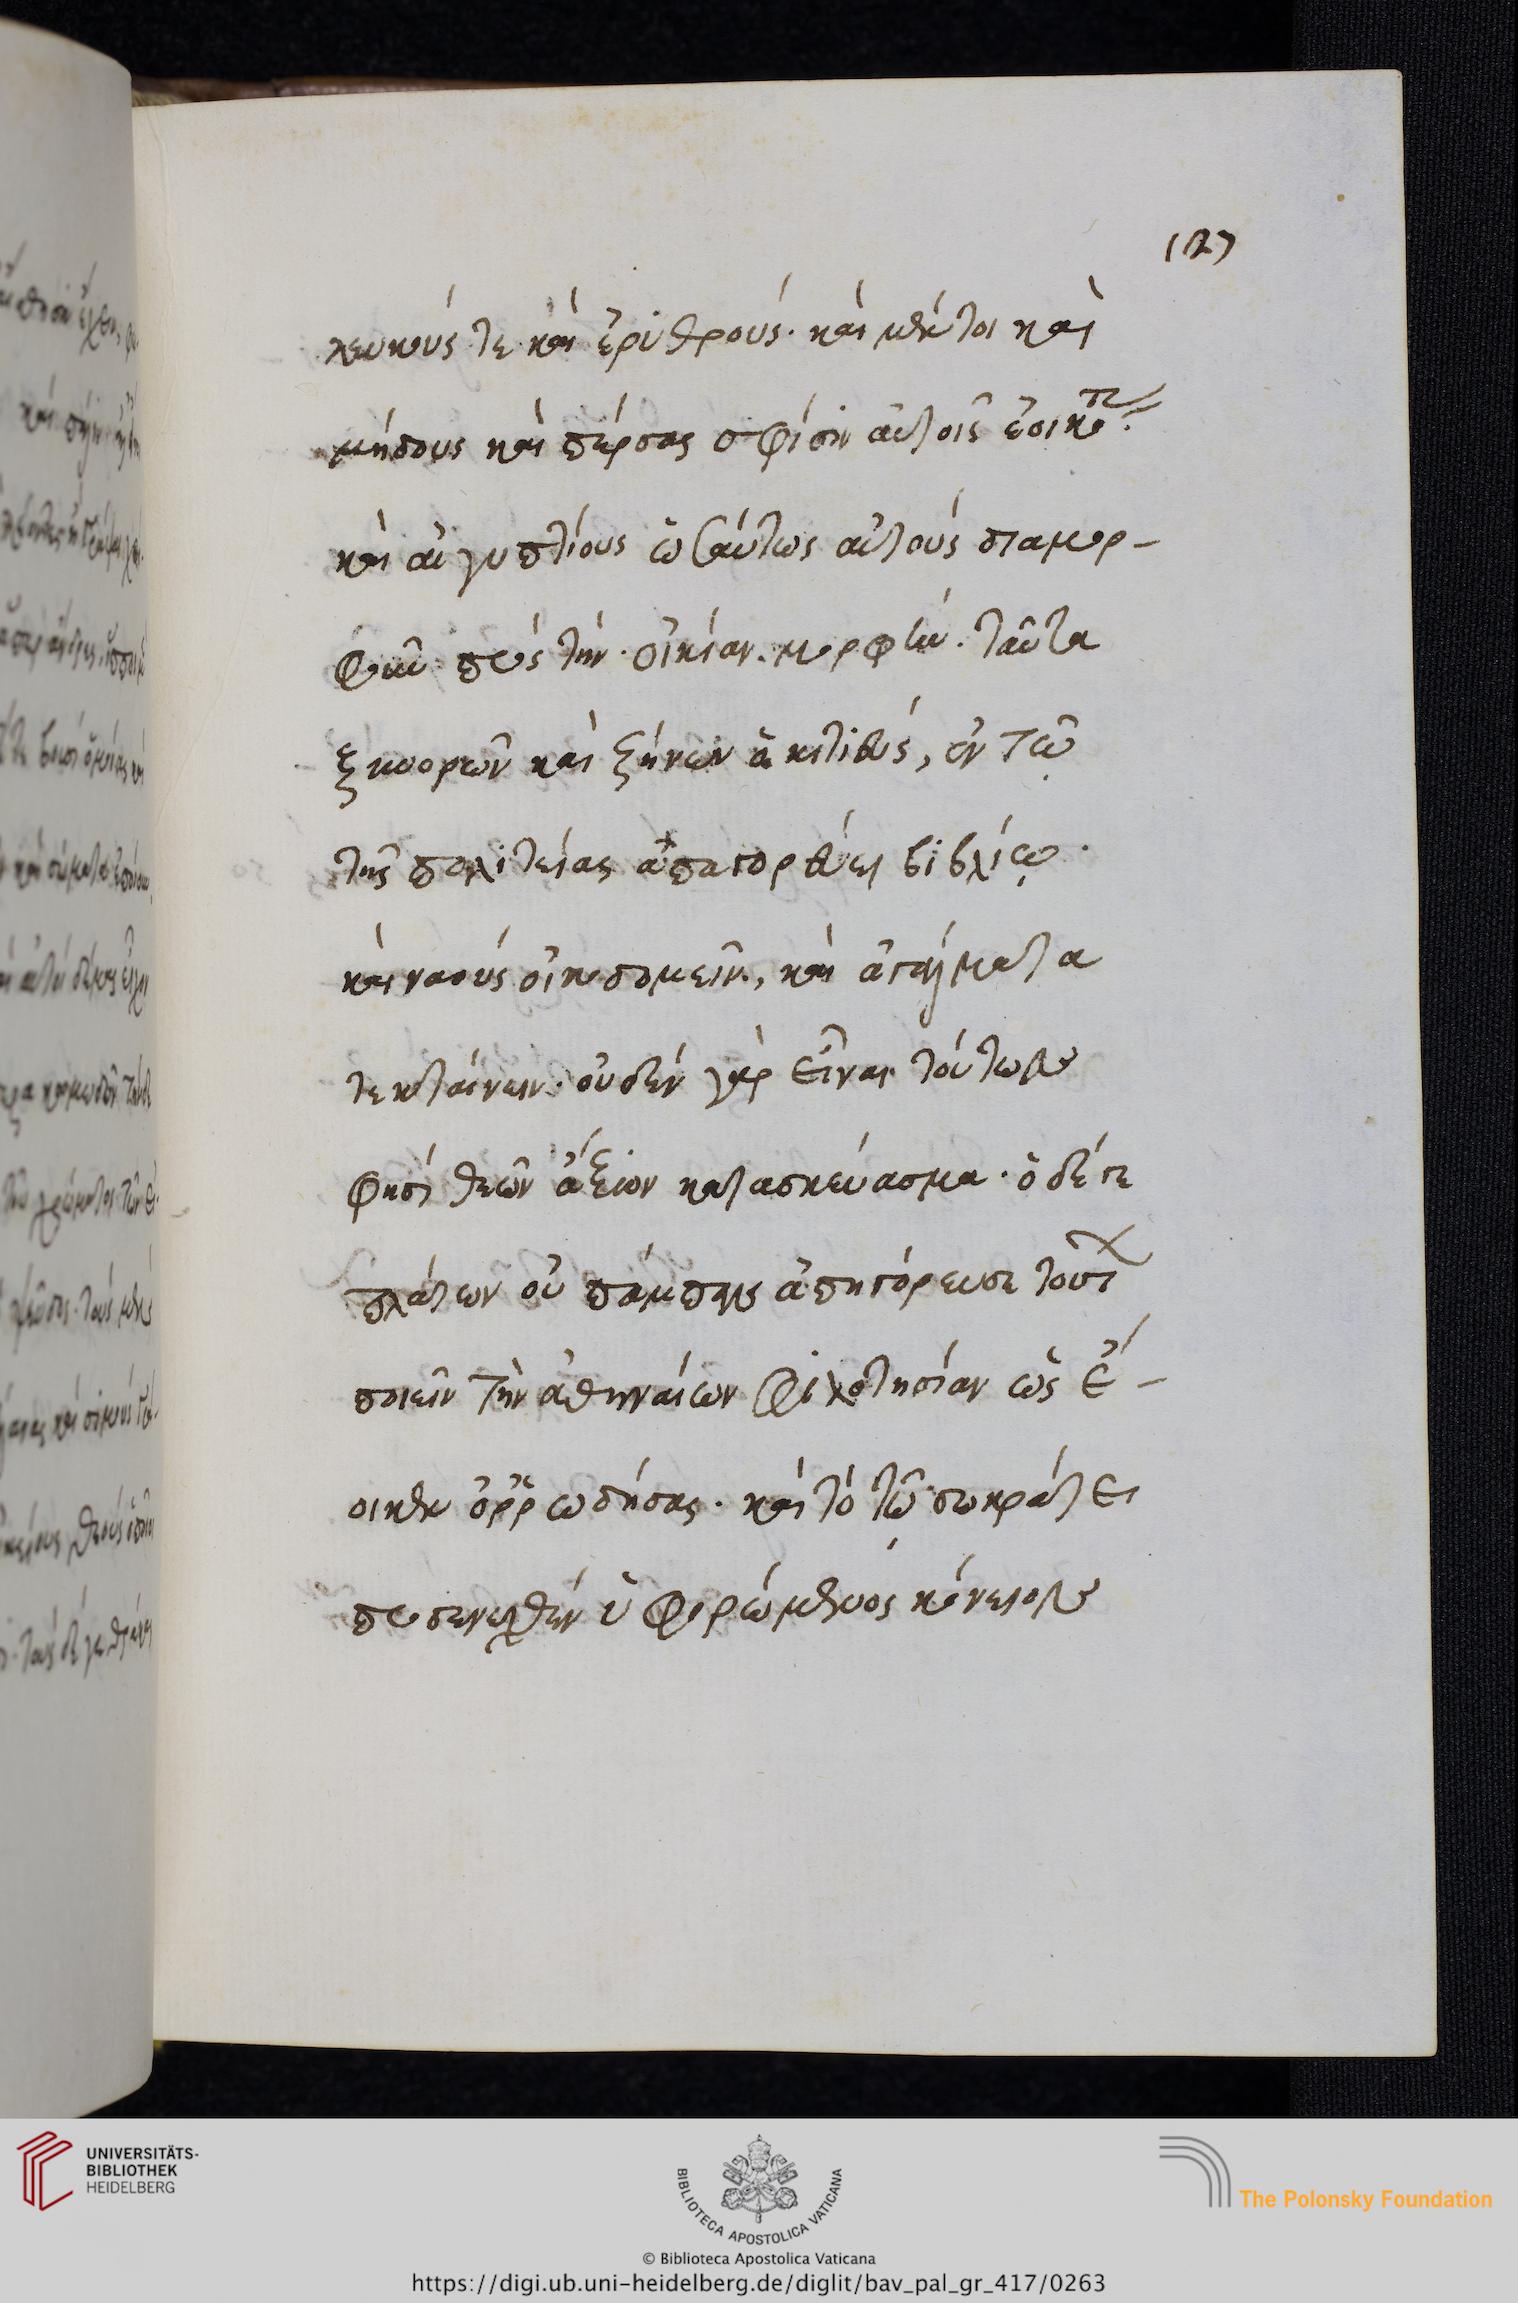 127
λευκούς τε καὶ ἐρυθρούς· καὶ μέντοι καὶ
μήδους καὶ πέρσας σφίσιν αὐτοῖς ἐοικότ
καὶ αἰγυπτίους ὡσαύτως αὐτοὺς διαμορ-
φοῦν πρὸς τὴν οἰκίαν μορφήν. ταῦτα
ξυνορῶν καὶ ζήνων ὁ κιτιεύς, ἐν τῷ
τῆς πολιτείας ἀπαγορεύει βιβλίῳ·
καὶ ναοὺς οἰκοδομεῖν, καὶ ἀγάλματα
τεκταίνειν· οὐδὲν γὰρ εἶναι τούτων
φησὶ θεῶν ἄξιον κατασκεύασμα· ὁ δέ γε
πλάτων οὐ ἀπηγόρευσε
ποιεῖν τὴν ἀθηναίων φιλοτησίαν ὡς ἔ-
οικεν ὀῤῥωδήσας· καὶ τὸ τῷ σωκράτει
προσενεχθὲν ὑφορώμενος κώνειον
UNIVERSITÄTS-
BIBLIOTHEK
HEIDELBERG
BIBLIOTECA APOSTOLICA VATICANA
The Polonsky Foundation
© Biblioteca Apostolica Vaticana
https://digi.ub.uni-heidelberg.de/diglit/bav_pal_gr_417/0263